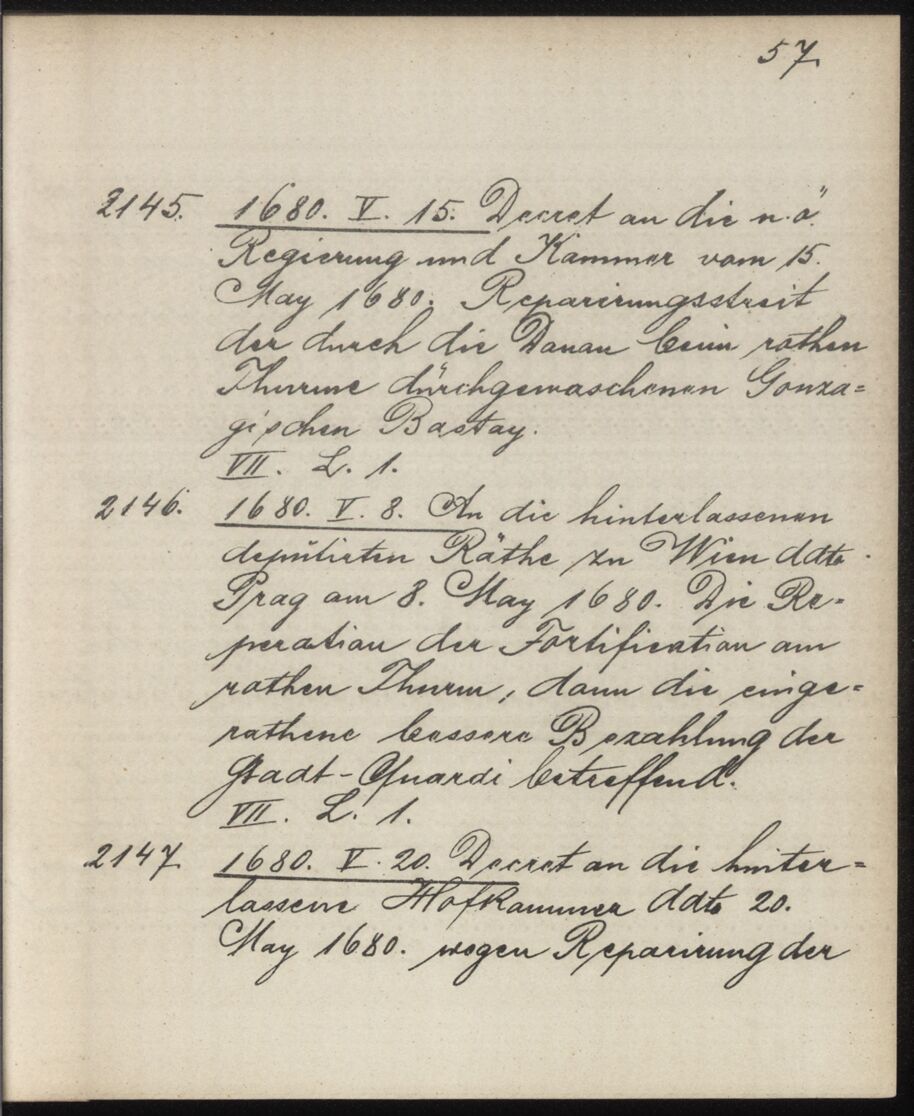 57.
2145. 1680. V. 15. Decret an die n. ö.
Regierung und Kammer vom 15.
May 1680. Reparirungsstreit
der durch die Donau beim rothen
Thurme dürchgewaschenen Gonza=
gischen Bastay.
VII. L. 1.
2146. 1680. V. 8. An die hinterlassenen
depütirten Räthe zu Wien ddto
Prag am 8. May 1680. Die Re=
peration der Fortification am
rothen Thurm, dann die einge=
rathene bessere Bezahlung der
Stadt-Quardi betreffend.
VII. L. 1.
2147. 1680. V. 20. Decret an die hinter=
lassene Hofkammer ddto 20.
May 1680. wegen Reparirung der